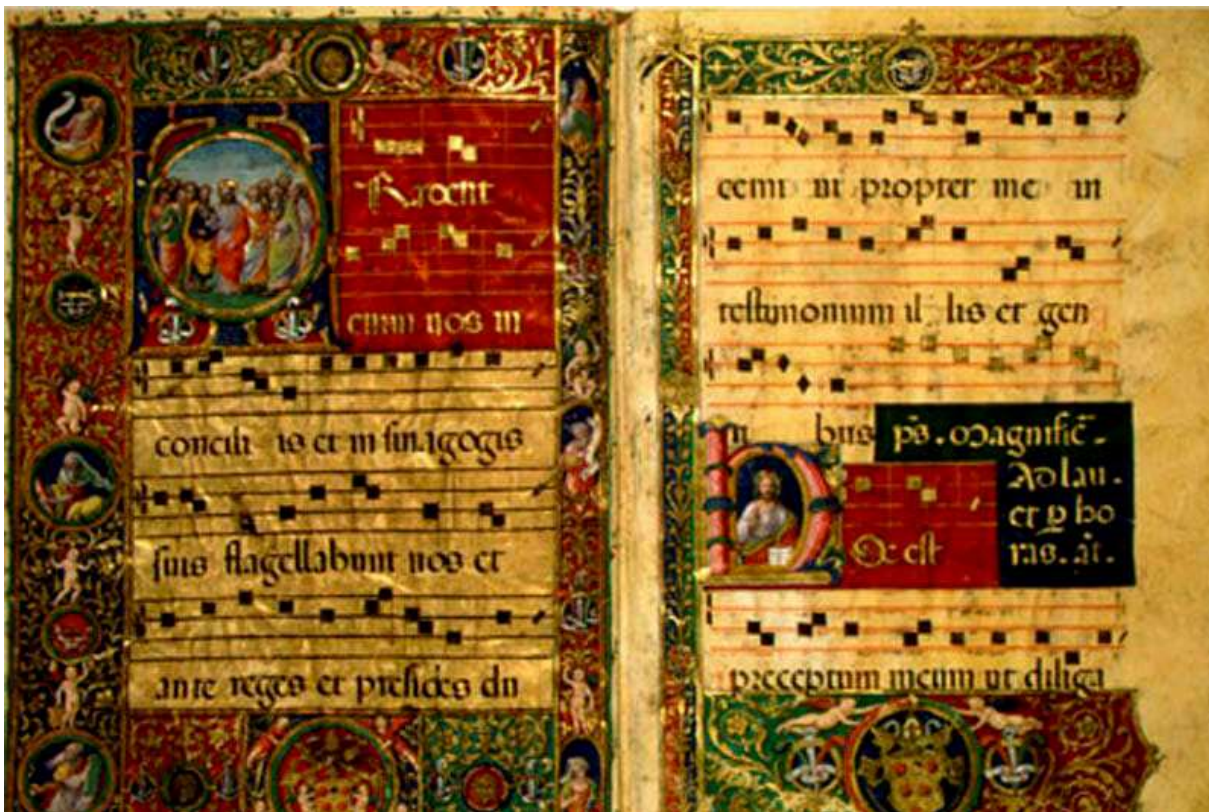 TRadent
enim vos in
concili is et in sinagogis
suis flagellabunt vos et
ante reges et presides du
cemi ni propter me in
testimonium il lis et gen
ti bus ps. Magnific̄.
Ad lau.
et ꝑ ho
ras. an̄.
HOc est
preceptum meum ut diliga